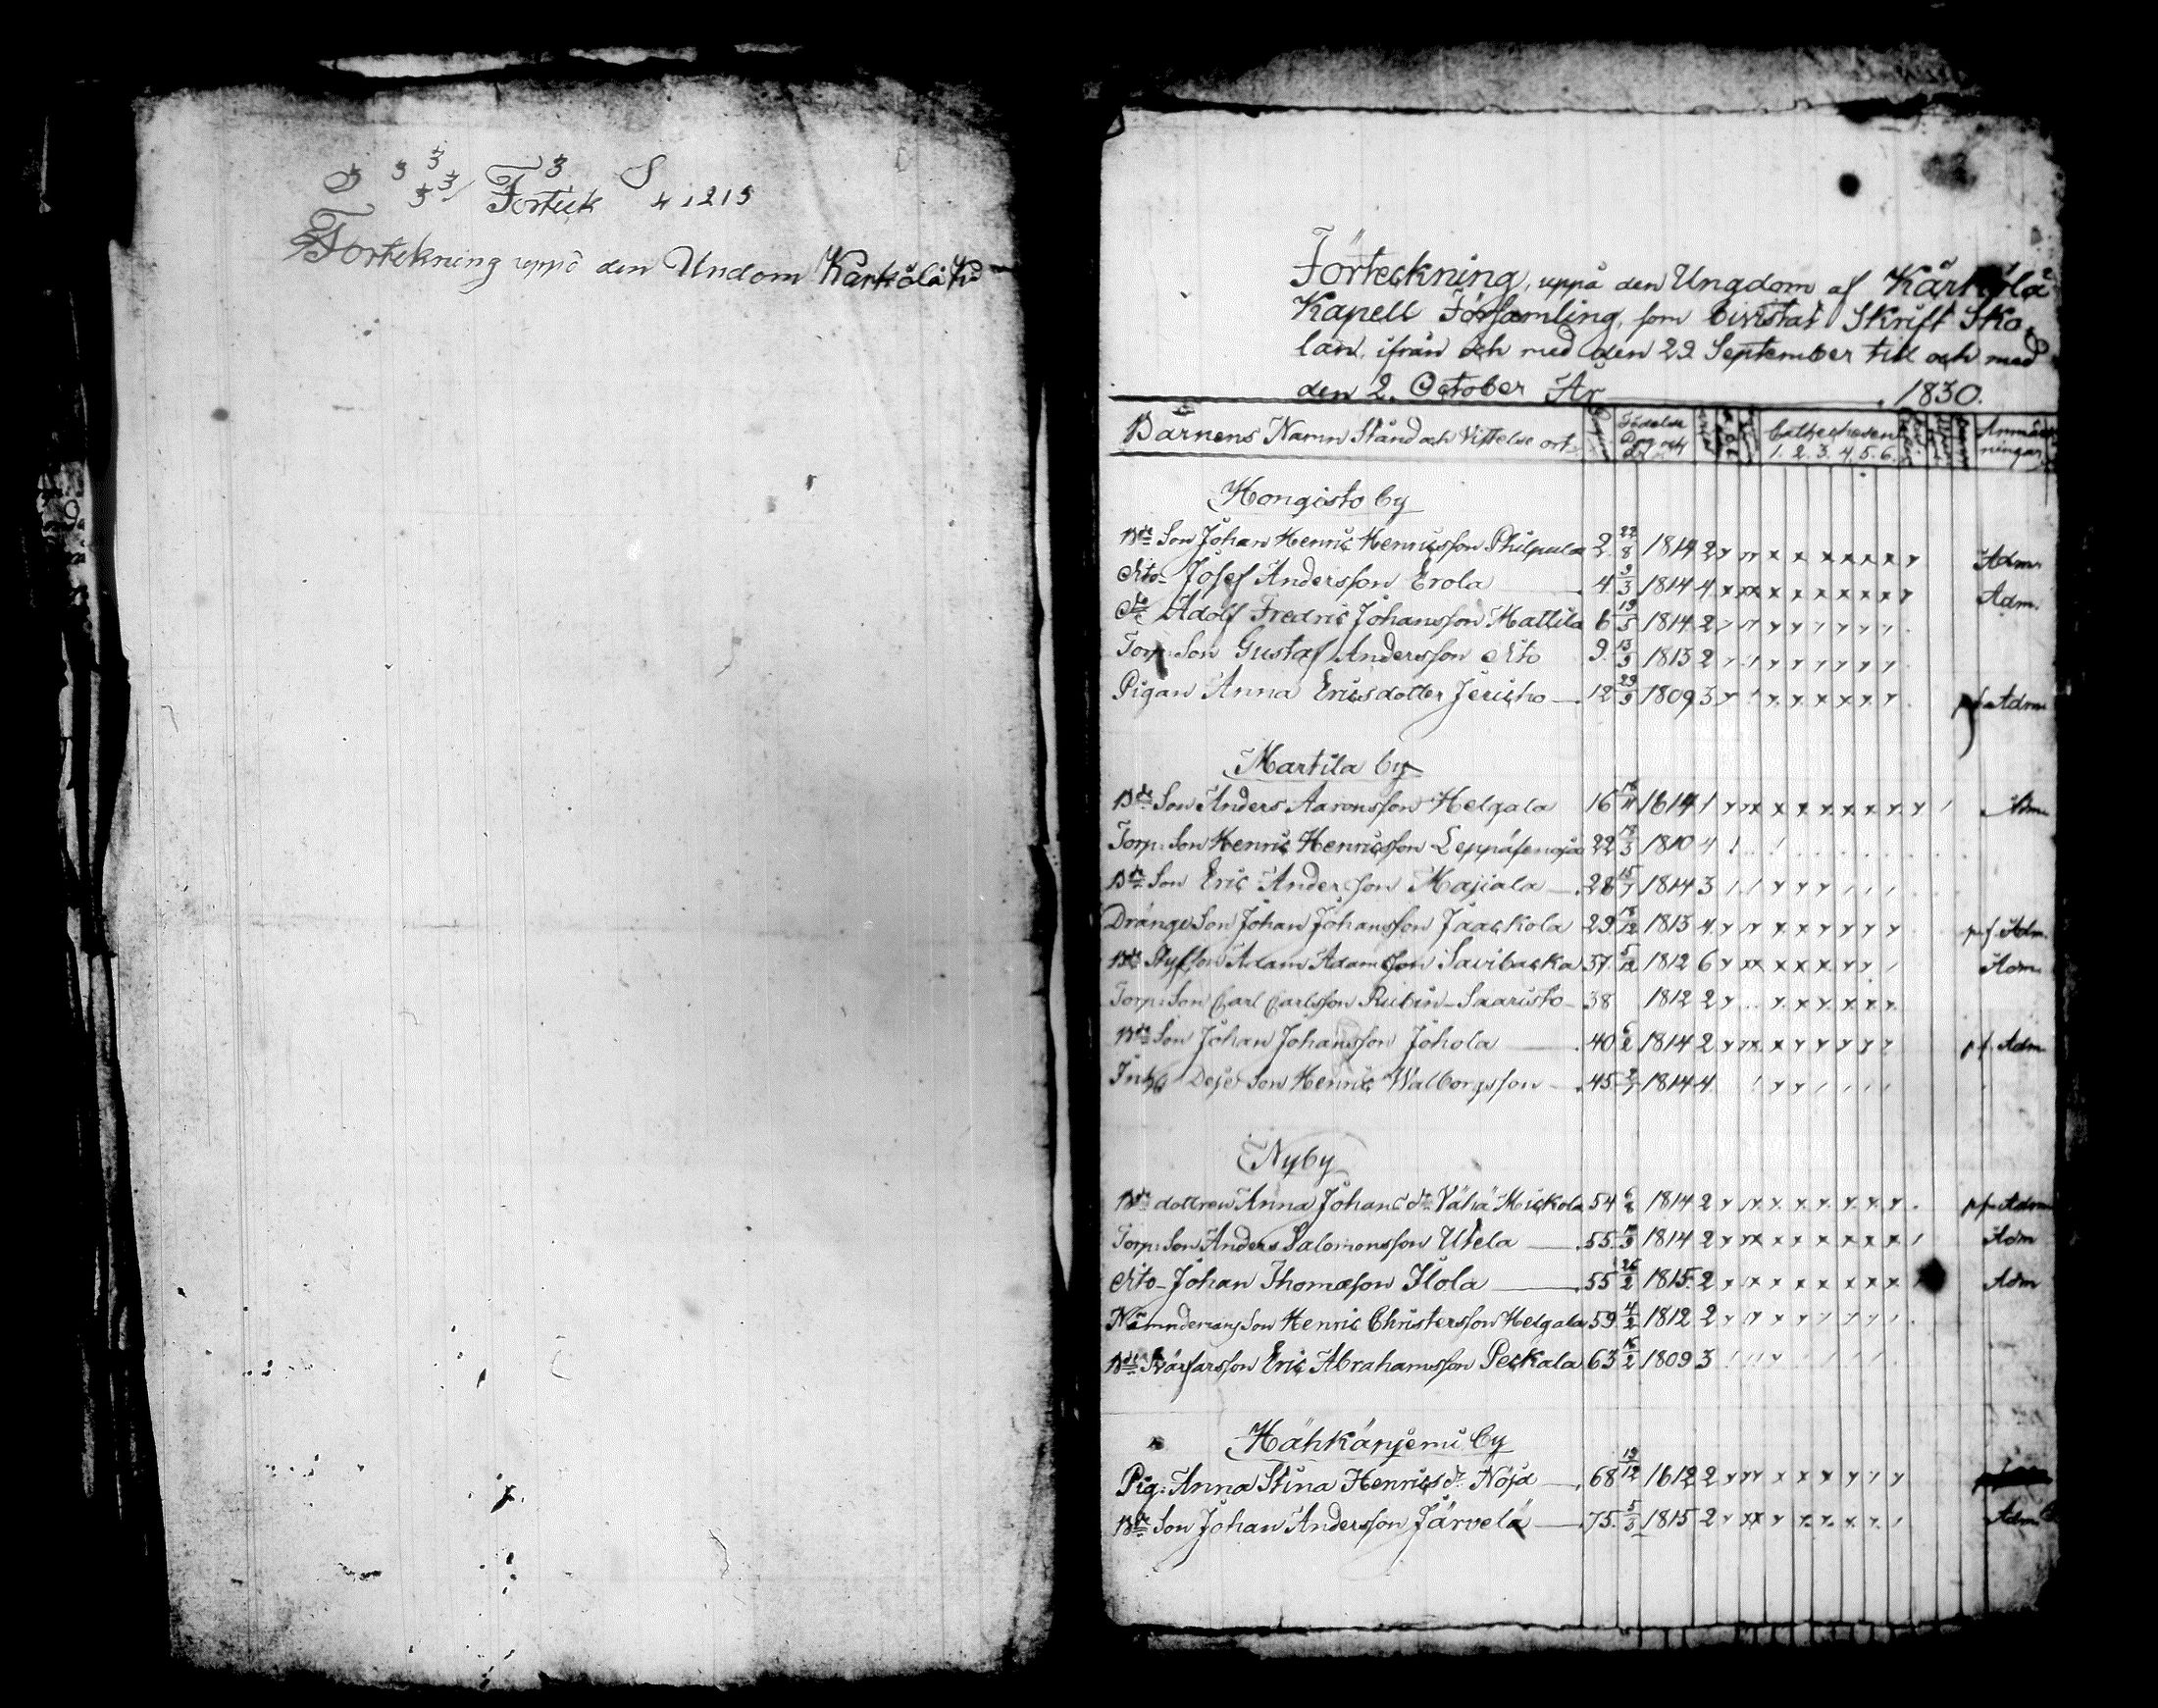 3 3 3 3 S
3 3/ Forteck 4 1215
Fortekning uppå den Undom Karkola K
Förteckning, uppå den Ungdom af Kärkölä
Kapell Församling, som bivistat Skrift Sko,
lan, ifrån och med den 29 September till och med
den 2. October År 1830.
Barnens Namn Stånd och Vistelse ort Födelse Dag och År Cathechesen 1. 2. 3. 4. 5. 6. Anmärkningar
Hongisto by
Bde Son Johan Henric Henricsson Philpula 2 22/8 1814 2 Adm.
dito Josef Andersson Erola 4 9/3 1814 4 Adm.
do Adolf Fredric Johansson Mattila 6 19/5 1814 2
Torp: Son Gustaf Andersson dito 9 13/9 1813 2
Pigan Anna Ericsdotter Jericho 12 29/9 1809 3 Adm
Martila by
Bde Son Anders Aaronsson Helgala 16 16/11 1814 1 Adm
Torp: Son Henric Henricsson Leppäsenoja 22 13/3 1810 4
Bde Son Eric Andersson Majiala 28 15/7 1814 3
Drängs Son Johan Johansson Jaackola 29 18/12 1813 4 pf. Adm.
Bde Styfson Adam Adamsson Savibacka 37 5/12 1812 6 Adm.
Torp: Son Carl Carlsson Rubin Saaristo 38 1812 2
Bde Son Johan Johansson Johola 40 6/2 1814 2 pf. Adm
Inh: Deje Son Henric Walborgsson 45 2/7 1814 4
Nyby
Bde dottren Anna Johansdr. Vähä Mickola 54 6/8 1814 2 pf. Adm
Torp: Son Anders Salomonsson Utela 55 10/9 1814 2 Adm
dito Johan Thomasson Ilola 55 26/2 1815 2 Adm
Nämndemans Son Henric Christersson Helgala 59 4/2 1812 2
Bde Svärfarsson Eric Abrahamsson Peckala 63 16/2 1809 3
Hähkänjemi by
Pig: Anna Stina Henricsdr. Nöjd 68 19/12 1812 2
Bde Son Johan Andersson Järvelä 75 5/3 1815 2 Adm